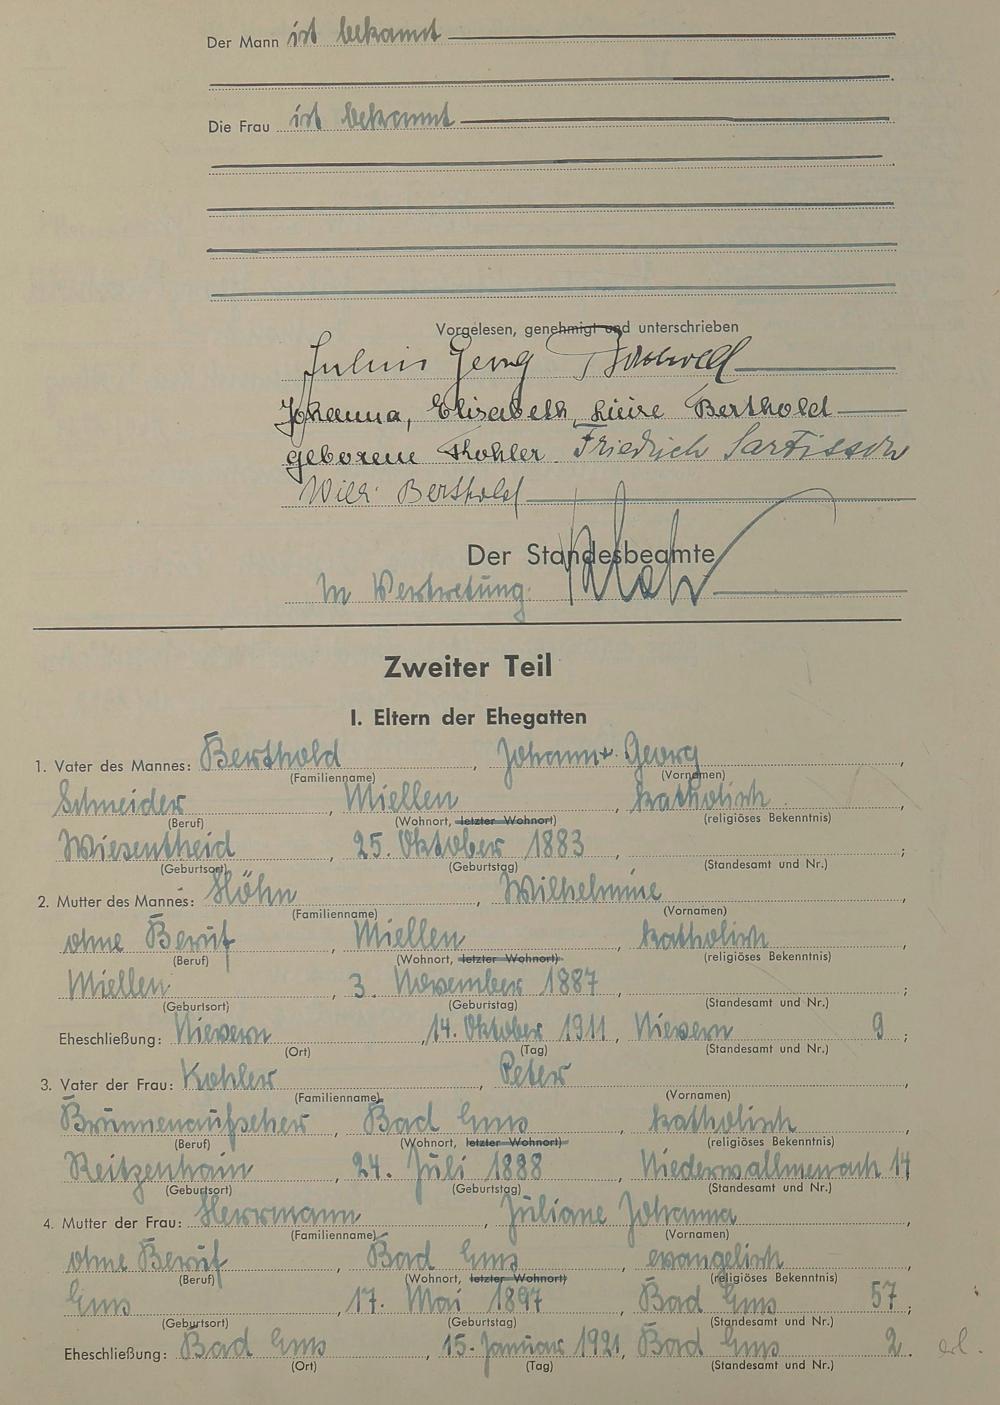 Der Mann ist bekannt
Die Frau ist bekannt
Vorgelesen, genehmigt und unterschrieben
Julius Georg Berthold
Johanna, Elisabeth, Luise Berthold
geborene Kohler Friedrich Sartisson
Willi Berthold
Der Standesbeamte
In Vertretung.
Zweiter Teil
I. Eltern der Ehegatten
1. Vater des Mannes: Berthold, Johann Georg,
(Familienname) (Vornamen)
Schneider, Miellen, katholisch,
(Beruf) (Wohnort, letzter Wohnort) (religiöses Bekenntnis)
Wiesentheid, 25. Oktober 1883, ;
(Geburtsort) (Geburtstag) (Standesamt und Nr.)
2. Mutter des Mannes: Höhn, Wilhelmine,
(Familienname) (Vornamen)
ohne Beruf, Miellen, katholisch,
(Beruf) (Wohnort, letzter Wohnort) (religiöses Bekenntnis)
Miellen, 3. November 1887, ;
(Geburtsort) (Geburtstag) (Standesamt und Nr.)
Eheschließung: Nievern, 14. Oktober 1911, Nievern 9;
(Ort) (Tag) (Standesamt und Nr.)
3. Vater der Frau: Kohler, Peter,
(Familienname) (Vornamen)
Brunnenaufseher, Bad Ems, katholisch,
(Beruf) (Wohnort, letzter Wohnort) (religiöses Bekenntnis)
Reitzenhain, 24. Juli 1888, Niederwallmenach 14
(Geburtsort) (Geburtstag) (Standesamt und Nr.)
4. Mutter der Frau: Herrmann, Juliane Johanna,
(Familienname) (Vornamen)
ohne Beruf, Bad Ems, evangelisch,
(Beruf) (Wohnort, letzter Wohnort) (religiöses Bekenntnis)
Ems, 17. Mai 1897, Bad Ems 57;
(Geburtsort) (Geburtstag) (Standesamt und Nr.)
Eheschließung: Bad Ems, 15. Januar 1921, Bad Ems 2. erl.
(Ort) (Tag) (Standesamt und Nr.)